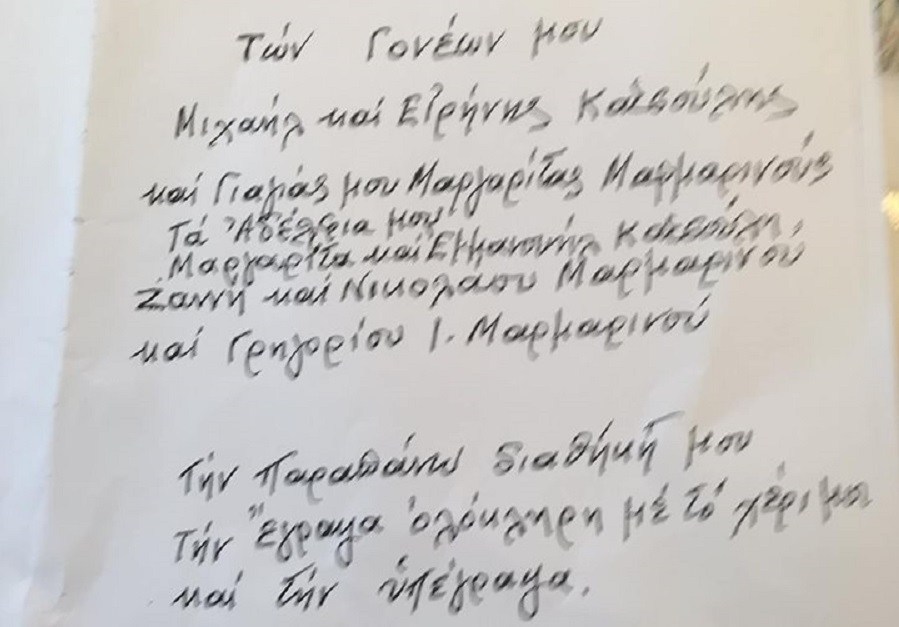 Τών Γονέων μου
Μιχαήλ και Είρήνης Κατσούλης
καί Γιαγιάς μου Μαργαρίτας Μαρμαρινούς
Τά Ἀδέλφια μου
Μαργαρίτα καί Εμμανουήλ Κατσούλη,
Ζαννή καί Νικολάου Μαρμαρινού
καί Γρηγορίου Ι. Μαρμαρινού
Τήν παραπάνω διαθήκή μου
Τήν Ἔγραψα ὁλόκληρη μέ τό χέρι μου
καί τήν ὑπέγραψα.